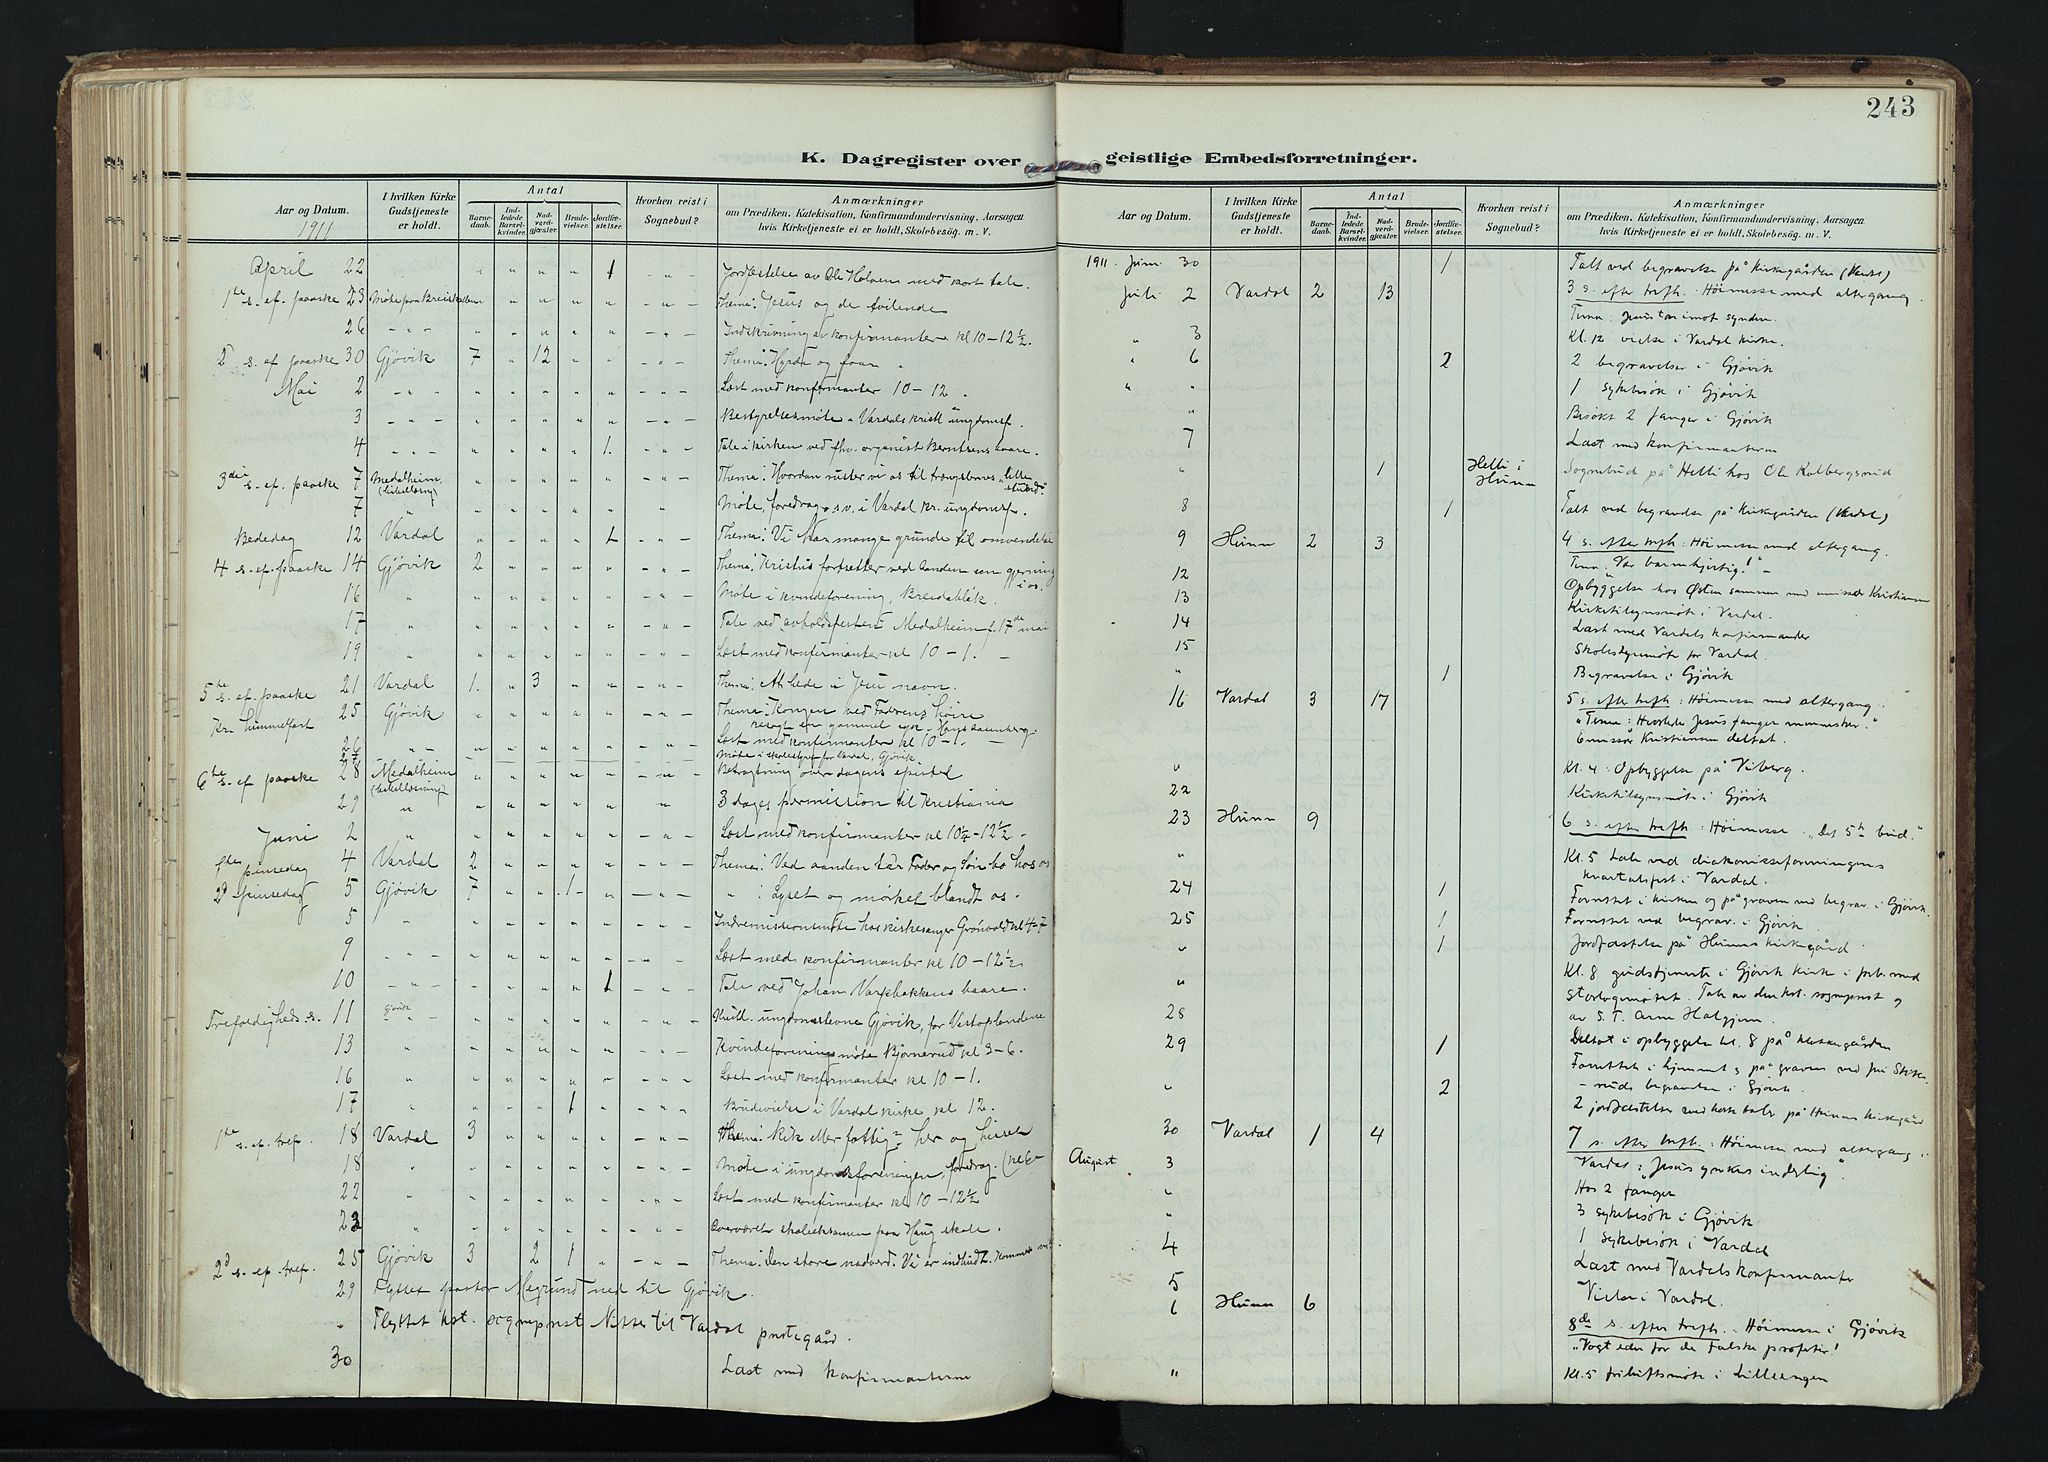 243
K. Dagregister over geistlige Embedsforretninger.
Aar og Datum. I hvilken Kirke Gudstjeneste er holdt. Antal Barnedaab. Indledede Barselkvinder. Nadverdgjæster. Brudevielser. Jordfæstelser. Hvorhen reist i Sognebud? Anmærkninger om Prædiken, Katekisation, Konfirmandundervisning, Aarsagen hvis Kirketjeneste ei er holdt, Skolebesøg. m. V.
1911
April 22 " " " " 1 - " - Jordfæstelse av Ole Holven med kort tale.
1te s. ef. paaske 23 Møte paa " " " " " - " - Thema: Jesus og de tvilende
26 - " - " " " " " - " - Indskrivning av konfirmanter kl 10-12½.
2 s. ef paaske 30 Gjøvik 7 " 12 " " - " - Thema: Hyrde og faar
Mai 2 - " - " " " " " - " - Læst med konfirmanter 10-12.
3 - " - " " " " " - " - Bestyrelsesmøte Vardals kristl. ungdomsf.
4 - " - " " " " 1. - " - Tale i kirken ved fhv. organist Berntsens baare.
3die s. ef. paaske 7 Medalheim " " " " " - " - Thema: Hvordan ruster vi os til trængslernes "lille stund".
7 " " " " " " " Møte, foredrag o.s.v. i Vardal kr. ungdomsf.
Bededag 12 Vardal " " " " 1 - " - Thema: Vi har mange grunde til omvendelse
4 s. ef. paaske 14 Gjøvik 2 " " " " - " - Thema: Kristus fortsetter ved Aanden sin gjerning i os.
16 " " " " " " - " - Møte i kvindeforening, Breidablik.
17 " " " " " " - " - Tale ved avholdsfesten Medalheim f. 17de mai
19 " " " " " " - " - Læst med konfirmanter kl 10-1.
5te s. ef. paaske 21 Vardal 1. " 3 " " - " - Thema: At bede i Jesu navn.
Kr. himmelfart 25 Gjøvik " " " " " - " - Thema: Kongen ved Faderens høire
26 - " - " " " " " - " - Læst med konfirmanter kl 10-1.
27 Møte i skolestyret for Vardal, Gjøvik.
6te s. ef paaske 28 Medalheim " " " " " - " - Betragtning over dagens epistel
29 " " " " " " " 3 dages permission til Kristiania
Juni 2 " " " " " " - " - Læst med konfirmanter kl 10½-12½.
1ste pinsedag 4 Vardal 2 " " " " - " - Thema: Ved aanden tar Fader og Søn bo hos os
2d pinsedag 5 Gjøvik 7 " " 1 - - " - " : Lyset og mørket blandt os.
5 " " " " " " - " - Indremissionsmøte hos kirkesanger Grønvold kl 4-7
9 - " - " " " " " - " - Læst med konfirmanter kl 10-12½
10 - " - " " " " 1 - " - Tale ved Johan Varpbakkens baare.
Trefoldigheds s. 11 Gjøvik " " " " " - " - Kristl. ungdomsstevne Gjøvik, for Vestoplandene
13 " " " " " " - " - Kvindeforeningsmøte Bjørnerud kl 3-6.
16 " " " " " " - " - Læst med konfirmanter kl 10-1.
17 " " " " 1 " - " - Brudevielse i Vardal kirke kl 12.
1te s. ef. tref. 18 Vardal 3 " " " " - " - Thema: Rik eller fattig? her og hisset
18 " " " " " " - " - Møte i ungdomsforeningen, foredrag.
22 " " " " " " - " - Læst med konfirmanter kl 10-12½
23 " " " " " " - " - Overværet skoleeksamen paa Haug skole.
2d s. ef. tref. 25 Gjøvik 3 2 1 " - " - Thema: Den store nadverd. Vi er indbudt. Kommer vi?
29 Flyttet pastor ned til Gjøvik.
" Flyttet kst. sogneprest Nitter til Vardal prestegård.
30 Læst med konfirmanterne
Aar og Datum. I hvilken Kirke Gudstjeneste er holdt. Antal Barnedaab. Indledede Barselkvinder. Nadverdgjæster. Brudevielser. Jordfæstelser. Hvorhen reist i Sognebud? Anmærkninger om Prædiken, Katekisation, Konfirmandundervisning, Aarsagen hvis Kirketjeneste ei er holdt, Skolebesøg. m. V.
1911. Juni 30 1 Talt ved begravelse på kirkegården (Vardal)
Juli 2 Vardal 2 13 3 s. efter trefh. : Høimesse med altergang.
Tema: Jesus tar imot syndere.
" 3 Kl. 12 vielse i Vardal kirke.
" 6 2 2 begravelser i Gjøvik
" " 1 sykebesøk i Gjøvik
" Besøkt 2 fanger i Gjøvik
7 Læst med konfirmanterne
" 1 Helli i Hunn Sognebud på Helli hos Ole Kolbergsrud
8 1 Talt ved begravelse på kirkegården (Vardal)
9 Hunn 2 3 4 s. efter trefh : Høimesse med altergang.
Tema: "Vær barmhjertig!" -
12 Opbyggelse hos Østen sammen med missær Kristiansen
13 Kirketilsynsmøte i Vardal.
14 Læst med Vardals konfirmander
15 Skolestyremøte for Vardal.
" 1 Begravelse i Gjøvik
16 Vardal 3 17 5 s. efter trefh : Høimesse med altergang.
"Tema: Hvorledes Jesus fanger mennesker."
Emissær Kristiansen deltat.
" Kl. 4 : Opbyggelse på Viberg.
22 Kirketilsynsmøte i Gjøvik
23 Hunn 9 6 s. efter trefh : Høimesse. "Det 5te bud."
" Kl. 5 tale ved diakonisseforeningens kvartalsfest i Vardal.
24 1 Forrettet i kirken og på graven ved begrav. i Gjøvik.
25 1 Forrettet ved begrav. i Gjøvik.
" 1 Jordfæstelse på Hunns kirkegård.
" Kl. 8 gudstjeneste i Gjøvik kirke i forb. med
storlogemøtet. Tale av den kst. sogneprest og
av S. T. Arne Halgjem.
28 Deltat i opbyggelse kl. 8 på
29 1 Forrettet i hjemmet og på graven ved begravelse i Gjøvik.
" 2 2 jordfæstelser med korte taler på Hunns kirkegård
30 Vardal 1 4 7 s. efter trefh. : Høimesse med altergang i
Vardal: "Jesus ynkes inderlig".
August 3 Hos 2 fanger
" 3 sykebesøk i Gjøvik
" 1 sykebesøk i Vardal
4 Læst med Vardals konfirmanter
5 Vielse i Vardal.
6 Hunn 6 8de s. efter trefh. : Høimesse i Gjøvik
"Vogt eder for de falske profeter!
" Kl. 5 friluftsmøte i Lilleengen